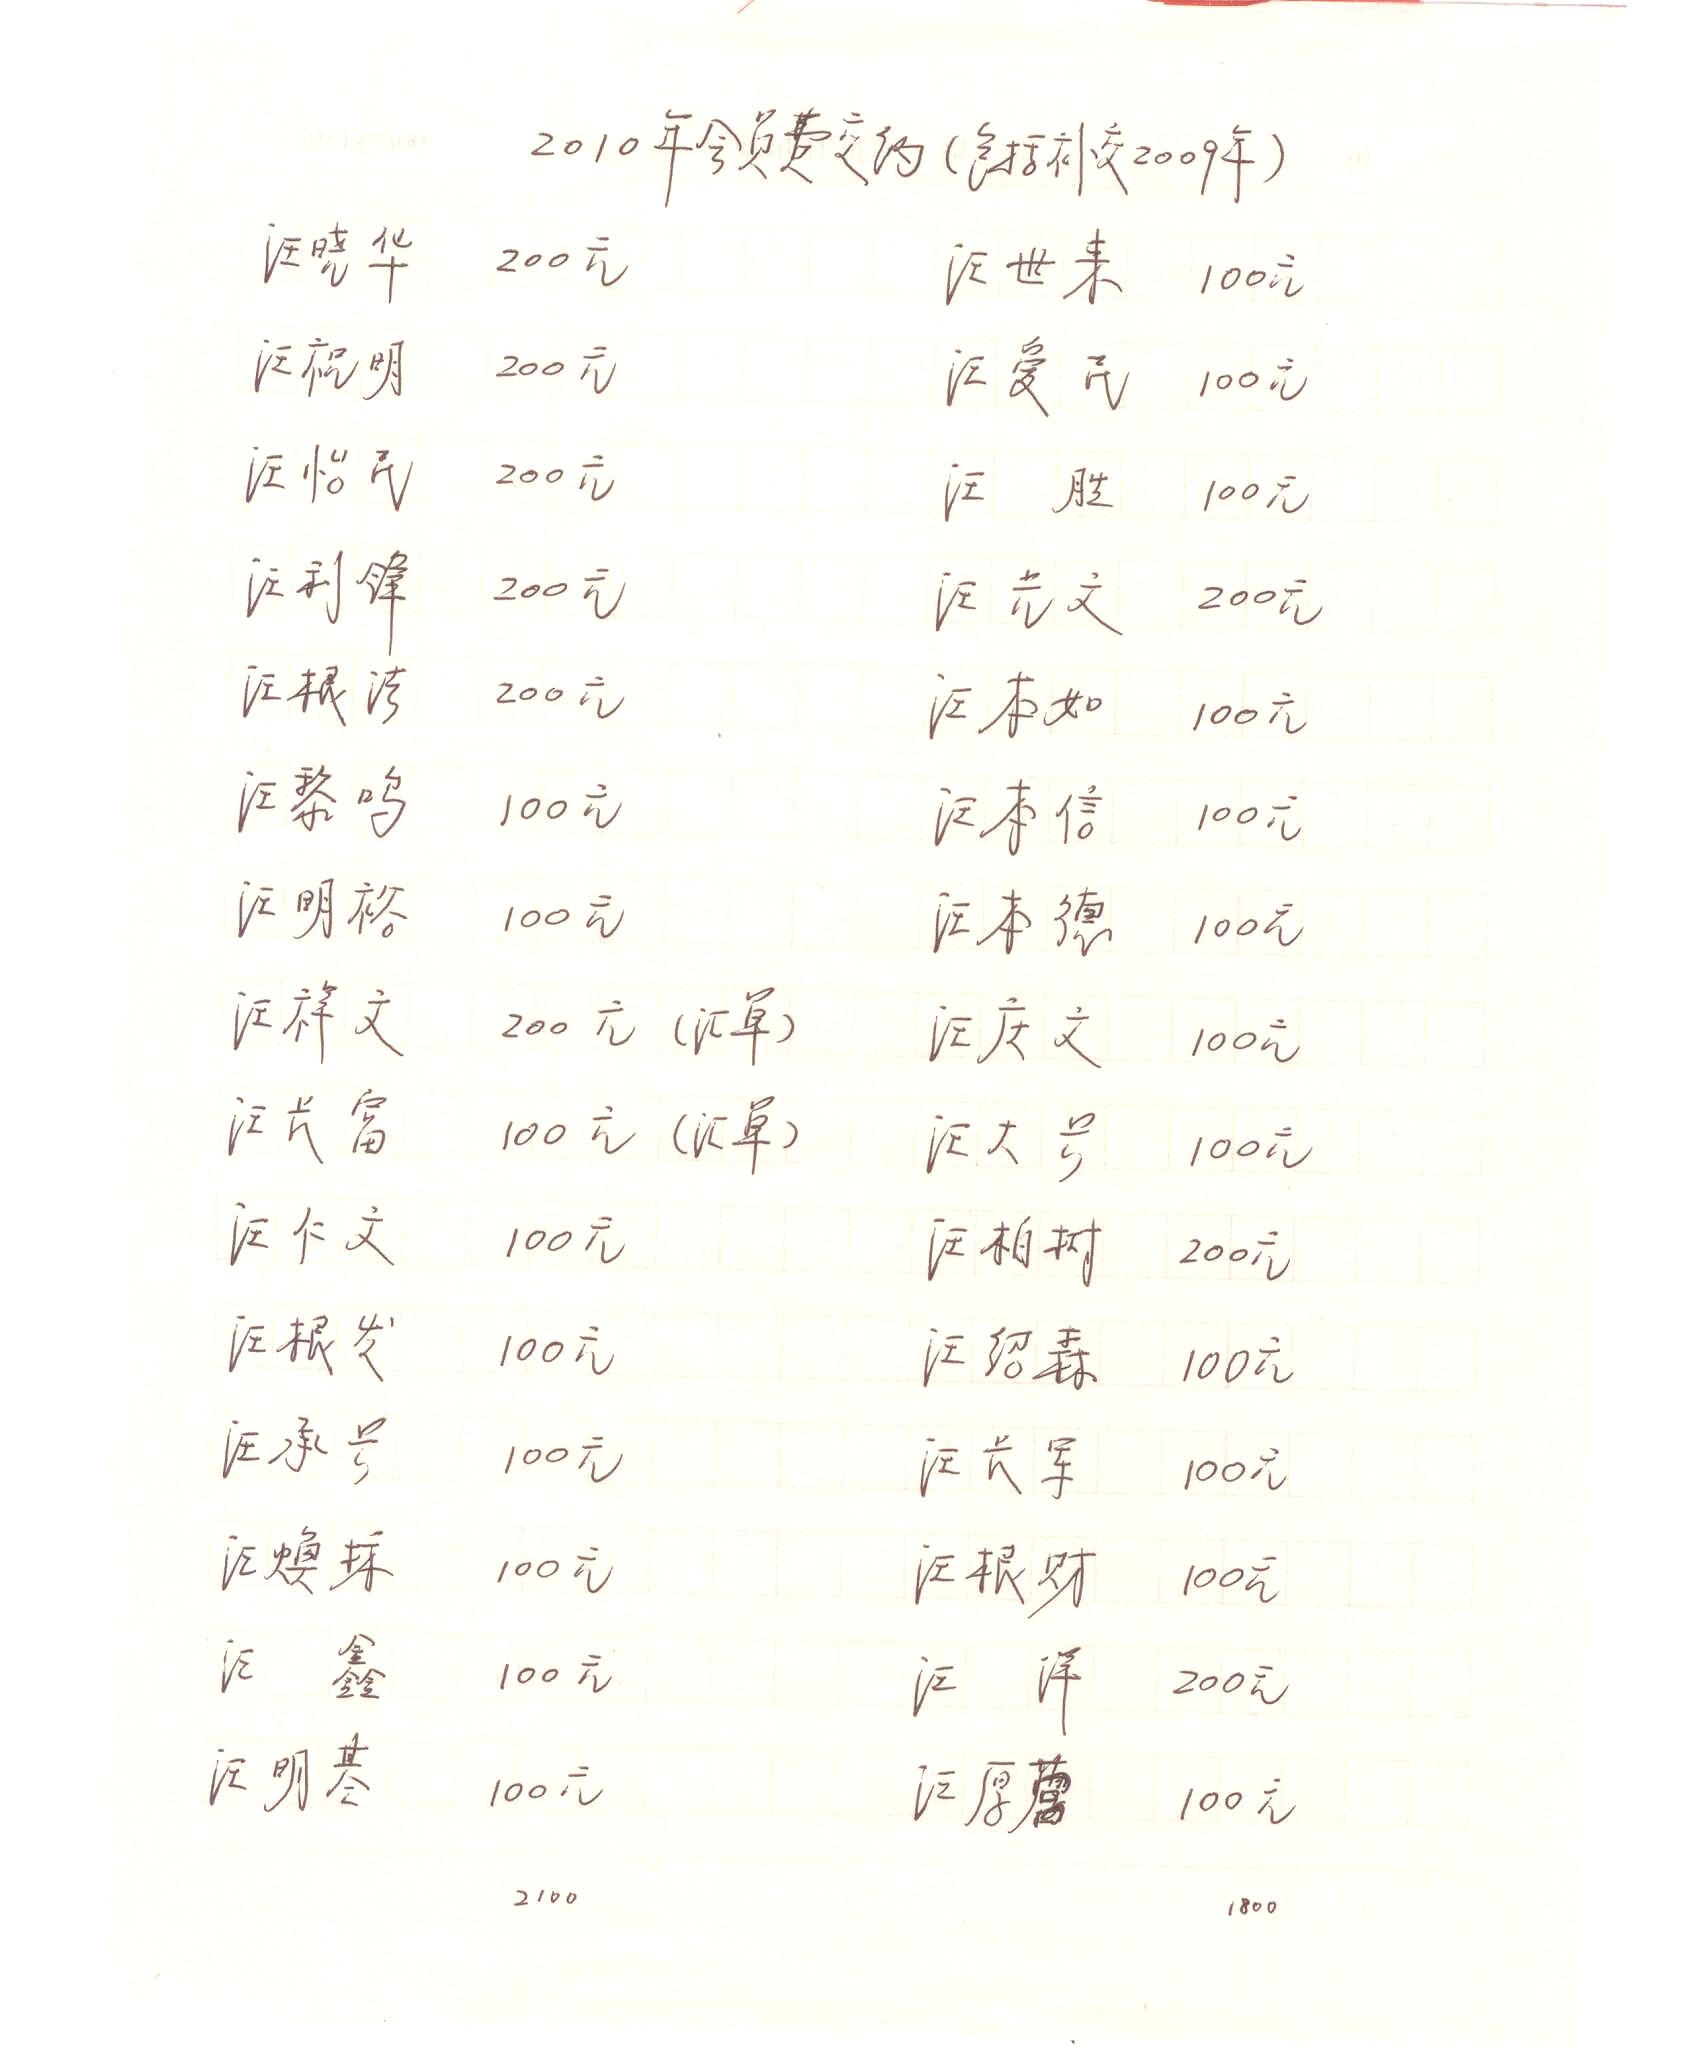 2010年会员费交纳(包括补交2009年)
汪晓华 200元 汪世来 100元
汪祝明 200元 汪爱民 100元
汪怡民 200元 汪胜 100元
汪利锋 200元 汪光文 200元
汪根法 200元 汪本如 100元
汪黎鸣 100元 汪本信 100元
汪明裕 100元 汪本德 100元
汪祥文 200元(汇单) 汪庆文 100元
汪长富 100元(汇单) 汪大号 100元
汪仁文 100元 汪柏树 200元
汪根发 100元 汪绍森 100元
汪承号 100元 汪长军 100元
汪焕採 100元 汪根财 100元
汪鑫 100元 汪洋 200元
汪明基 100元 汪厚 100元
2100 1800